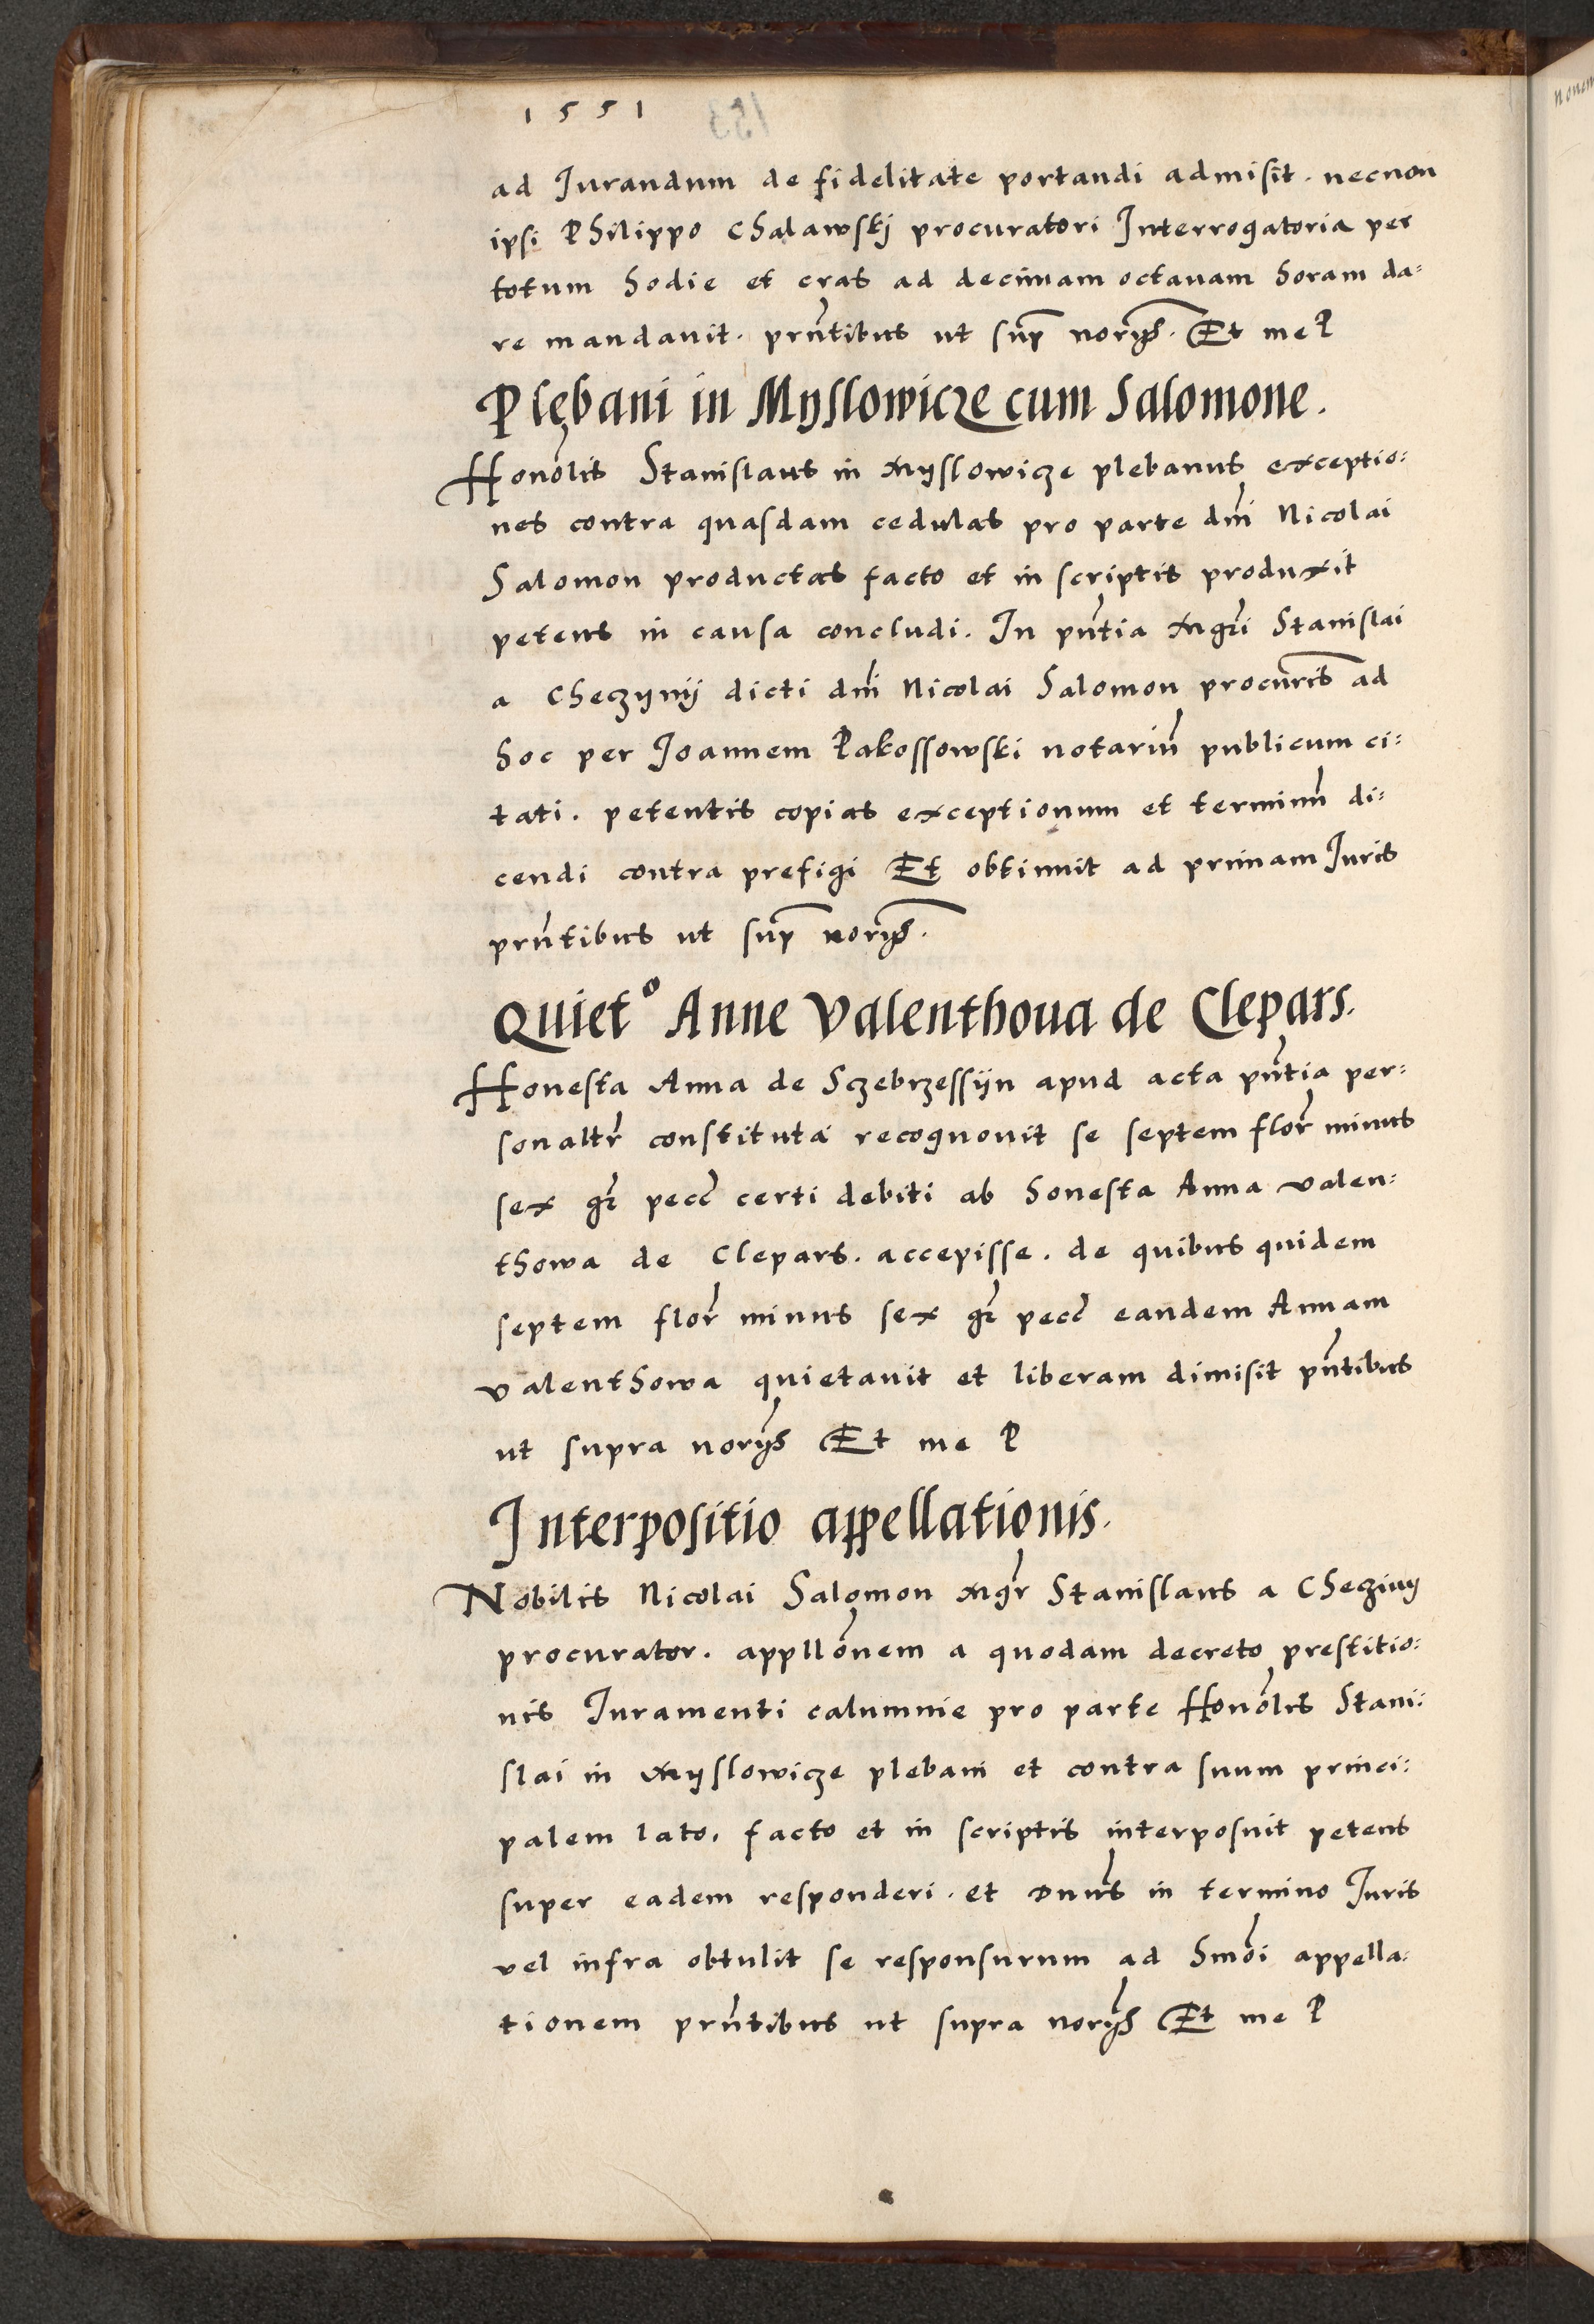 1551
ad Jurandum de fidelitate portandi admisit. necnon
ipsi Philippo Chalawskj procuratori Interrogatoria per
totum hodie et cras ad decimam octauam horam da=
re mandauit. prntibus ut sup norys. Et me P
Plebani in Myslowicze cum Salomone.
Honolis Stanislaus in Myslowicze plebanus exceptio=
nes contra quasdam cedulas pro parte dni Nicolai
Salomon productas facto et in scriptis produxit
petens in causa concludi. In pntia Mgri Stanislai
a Checzynij dicti dni Nicolai Salomon procuris ad
hoc per Joannem Pakossowski notariu publicum ci=
tati. petentis copias exceptionum et terminu di=
cendi contra prefigi Et obtinuit ad primam Juris
prntibus ut sup norys.
Quiet° Anne Valenthoua de Clepars.
Honesta Anna de Sczebrzessyn apud acta pntia per=
sonaltr constituta recognouit se septem flor minus
sex gr pecc certi debiti ab honesta Anna valen=
thowa de Clepars. accepisse. de quibus quidem
septem flor minus sex gr pecc eandem Annam
valenthowa quietauit et liberam dimisit pntibus
ut supra norys Et me P
Interpositio appellationis.
Nobilis Nicolai Salomon Mgr Stanislaus a Checziny
procurator. appllonem a quodam decreto prestitio=
nis Juramenti calumnie pro parte Honolis Stani=
slai in Myslowicze plebani et contra suum princi=
palem lato. facto et in scriptis interposuit petens
super eadem responderi. et Dnus in termino Juris
vel infra obtulit se responsurum ad hmoi appella=
tionem prntibus ut supra norys Et me P